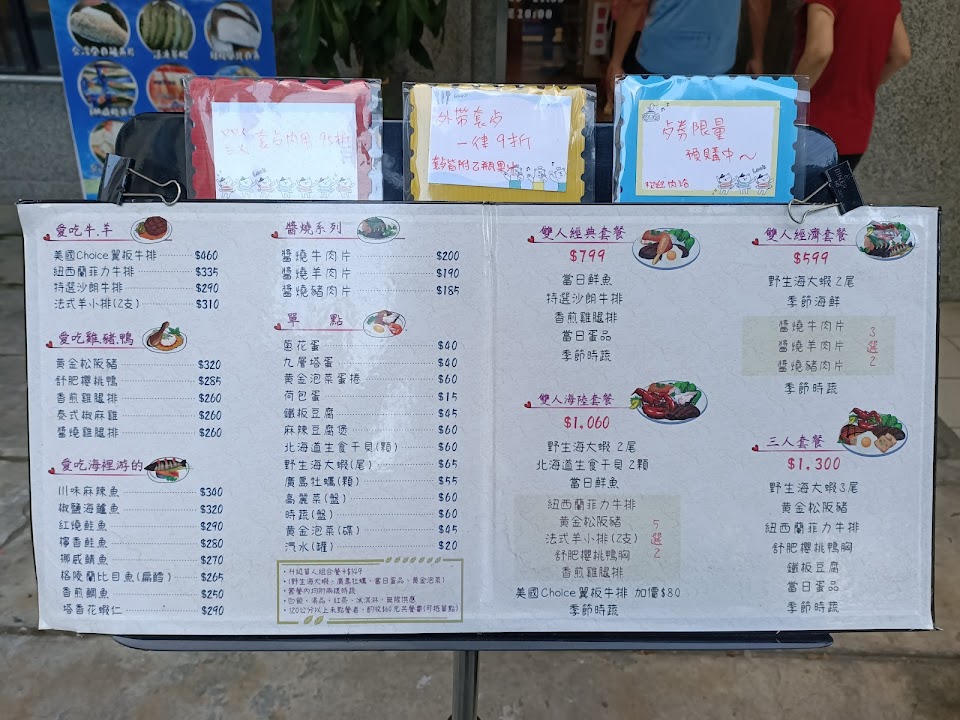 套卡內用 95折
外帶套卡
一律9折
E20:00
預購中～
愛吃牛.羊
美國Choice翼板牛排 $460
紐西蘭菲力牛排 $335
特選沙朗牛排 $290
法式羊小排(2支) $310
愛吃雞.豬.鴨
黃金松阪豬 $320
舒肥櫻桃鴨 $285
香煎雞腿排 $260
泰式椒麻雞 $260
醬燒雞腿排 $260
愛吃海裡游的
川味麻辣魚 $340
椒鹽海鱺魚 $320
紅燒鮭魚 $290
檸香鮭魚 $280
挪威鯖魚 $270
格陵蘭比目魚(扁鱈) $265
香煎鯛魚 $250
塔香花蝦仁 $290
醬燒系列
醬燒牛肉片 $200
醬燒羊肉片 $190
醬燒豬肉片 $185
單 點
蔥花蛋 $40
九層塔蛋 $40
黃金泡菜蛋捲 $60
荷包蛋 $15
鐵板豆腐 $45
麻辣豆腐煲 $60
北海道生食干貝(顆) $60
野生海大蝦(尾) $65
廣島牡蠣(顆) $55
高麗菜(盤) $60
時蔬(盤) $60
黃金泡菜(碟) $45
汽水(罐) $20
•升級單人組合餐+$149
•(野生海大蝦、廣島牡蠣、當日蛋品、黃金泡菜)
•套餐內均附兩樣時蔬
•白飯、湯品、紅茶、冰淇淋，無限供應
雙人經典套餐
$799
當日鮮魚
特選沙朗牛排
香煎雞腿排
當日蛋品
季節時蔬
雙人海陸套餐
$1.060
野生海大蝦 2尾
北海道生食干貝 2顆
當日鮮魚
紐西蘭菲力牛排
黃金松阪豬
法式羊小排(2支)
舒肥櫻桃鴨胸
香煎雞腿排
5選2
美國Choice翼板牛排 加價$80
季節時蔬
雙人經濟套餐
$599
野生海大蝦 2尾
季節海鮮
醬燒牛肉片
醬燒羊肉片
醬燒豬肉片
3選2
季節時蔬
三人套餐
$1.300
野生海大蝦 3尾
黃金松阪豬
紐西蘭菲力牛排
舒肥櫻桃鴨胸
鐵板豆腐
當日蛋品
季節時蔬